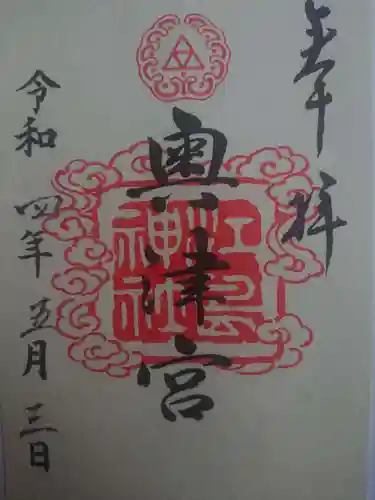 奉拝
奥津宮
江島神社
令和四年五月三日